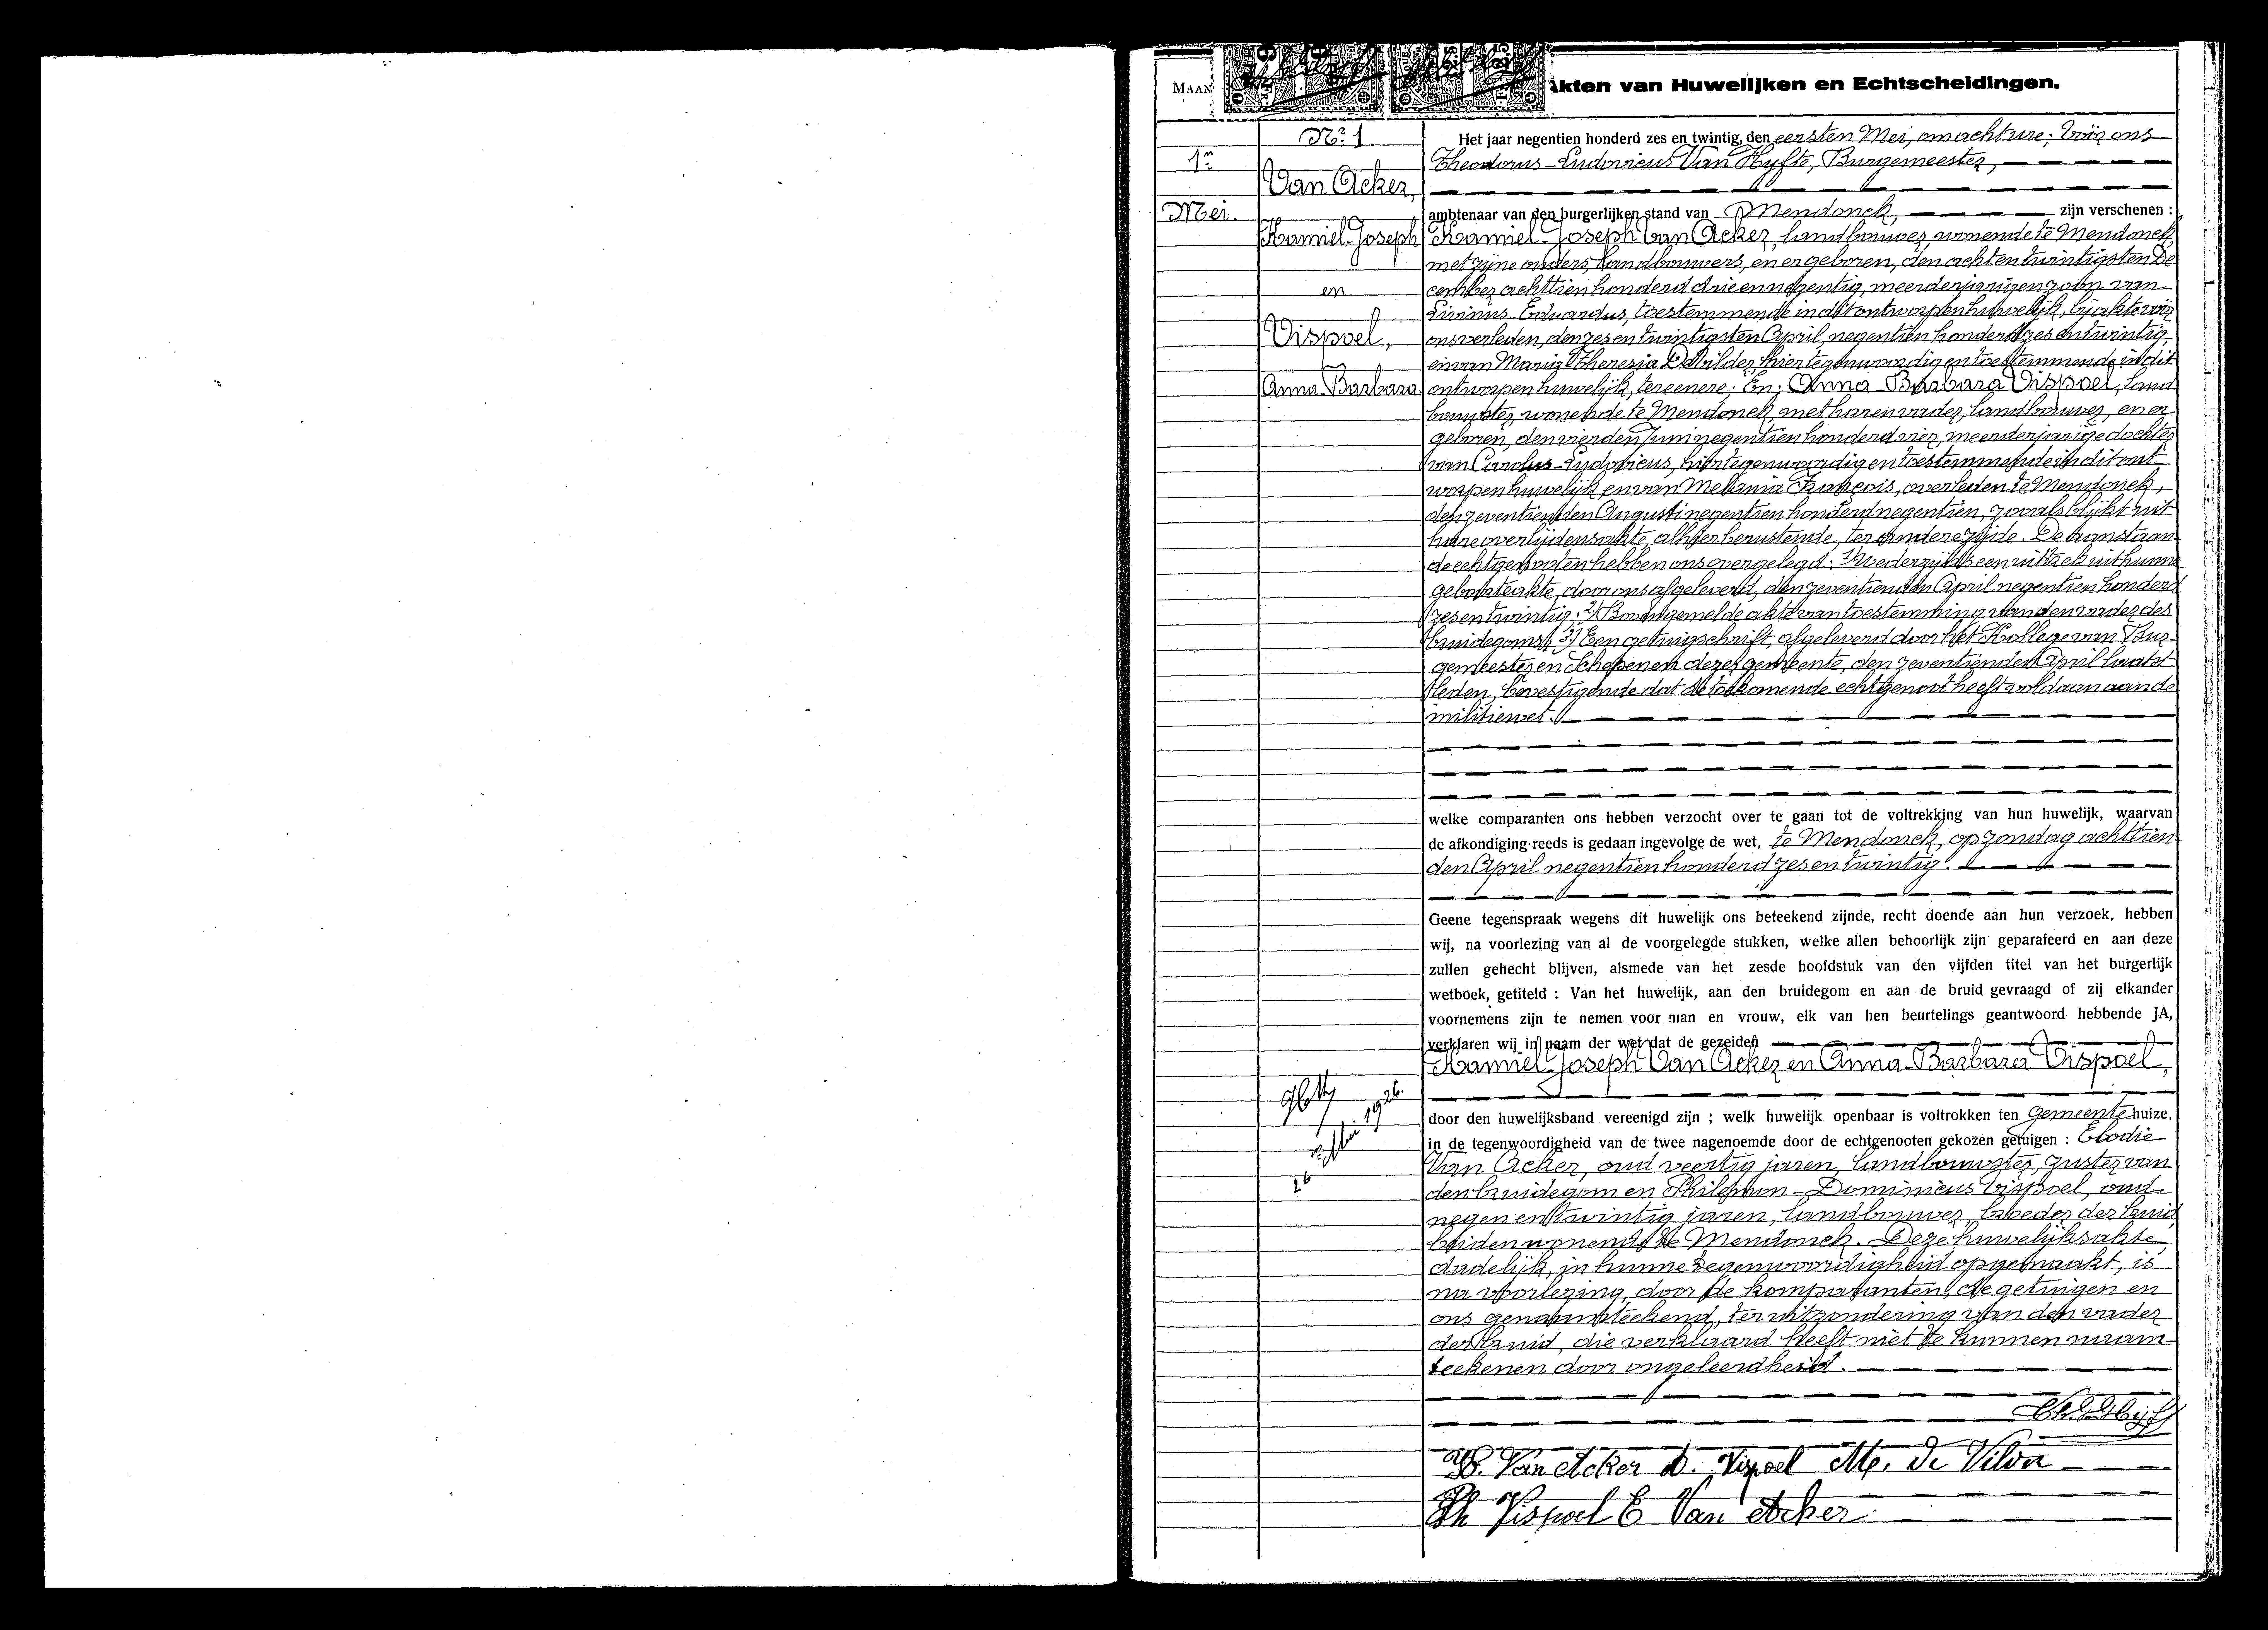 MAAN
Akten van Huwelijken en Echtscheidingen.
1n
Mei.
No. 1
Van Acker,
Kamiel-Joseph
en
Vispoel,
Anna-Barbara.
Het jaar negentien honderd zes en twintig, den eersten Mei, om acht ure; Vóór ons
Theodorus-Ludovicus Van Hyfte, Burgemeester,
ambtenaar van den burgerlijken stand van Mendonck, zijn verschenen :
Kamiel-Joseph Van Acker, landbouwer, wonende te Mendonck,
met zijne ouders, landbouwers, en er geboren, den acht en twintigsten De-
cember achttien honderd drie en negentig, meerderjarigen zoon van
Livinus-Eduardus, toestemmende in dit ontworpen huwelijk, bij akte vóór
ons verleden, den zes en twintigsten April, negentien honderd zes en twintig,
en van Maria-Theresia De Vilder, hier tegenwoordig en toestemmende in dit
ontworpen huwelijk, ter eenere; En: Anna-Barbara Vispoel, land-
bouwster, wonende te Mendonck, met haren vader, landbouwer, en er
geboren, den vierden Juni negentien honderd vier, meerderjarige dochter
van Carolus-Ludovicus, hier tegenwoordig en toestemmende in dit ont-
worpen huwelijk, en van Melania François, overleden te Mendonck,
den zeventienden Augusti negentien honderd negentien, zooals blijkt uit
hare overlijdensakte, alhier berustende, ter andere zijde. De aanstaan-
de echtgenooten hebben ons overgelegd: 1) Wederzijds een uittrek uit hunne
geboorteakte, door ons afgeleverd, den zeventienden April negentien honderd
zes en twintig; 2) Bovengemelde akte van toestemming van den vader des
bruidegoms; 3) Een getuigschrift, afgeleverd door het Kollege van Bur-
gemeester en Schepenen dezer gemeente, den zeventienden April laatst-
leden, bevestigende dat de toekomende echtgenoot heeft voldaan aan de
militiewet.
welke comparanten ons hebben verzocht over te gaan tot de voltrekking van hun huwelijk, waarvan
de afkondiging reeds is gedaan ingevolge de wet, te Mendonck, op zondag achttien-
den April negentien honderd zes en twintig.
Geene tegenspraak wegens dit huwelijk ons beteekend zijnde, recht doende aan hun verzoek, hebben
wij, na voorlezing van al de voorgelegde stukken, welke allen behoorlijk zijn geparafeerd en aan deze
zullen gehecht blijven, alsmede van het zesde hoofdstuk van den vijfden titel van het burgerlijk
wetboek, getiteld : Van het huwelijk, aan den bruidegom en aan de bruid gevraagd of zij elkander
voornemens zijn te nemen voor man en vrouw, elk van hen beurtelings geantwoord hebbende JA,
verklaren wij in naam der wet dat de gezeiden
Kamiel-Joseph Van Acker en Anna-Barbara Vispoel,
door den huwelijksband vereenigd zijn ; welk huwelijk openbaar is voltrokken ten gemeentehuize,
in de tegenwoordigheid van de twee nagenoemde door de echtgenooten gekozen getuigen : Elodie
Van Acker, oud veertig jaren, landbouwster, zuster van
den bruidegom en Philemon-Dominicus Vispoel, oud
negen en twintig jaren, landbouwer, broeder der bruid,
beiden wonende te Mendonck. Deze huwelijksakte,
dadelijk, in hunne tegenwoordigheid opgemaakt, is
na voorlezing, door de komparanten, de getuigen en
ons genaamteekend, ter uitzondering van den vader
der bruid, die verklaard heeft niet te kunnen naam-
teekenen door ongeleerdheid.
26 Mei 1926.
K. Van Acker A. Vispoel M. De Vilder
Ph Vispoel E Van Acker